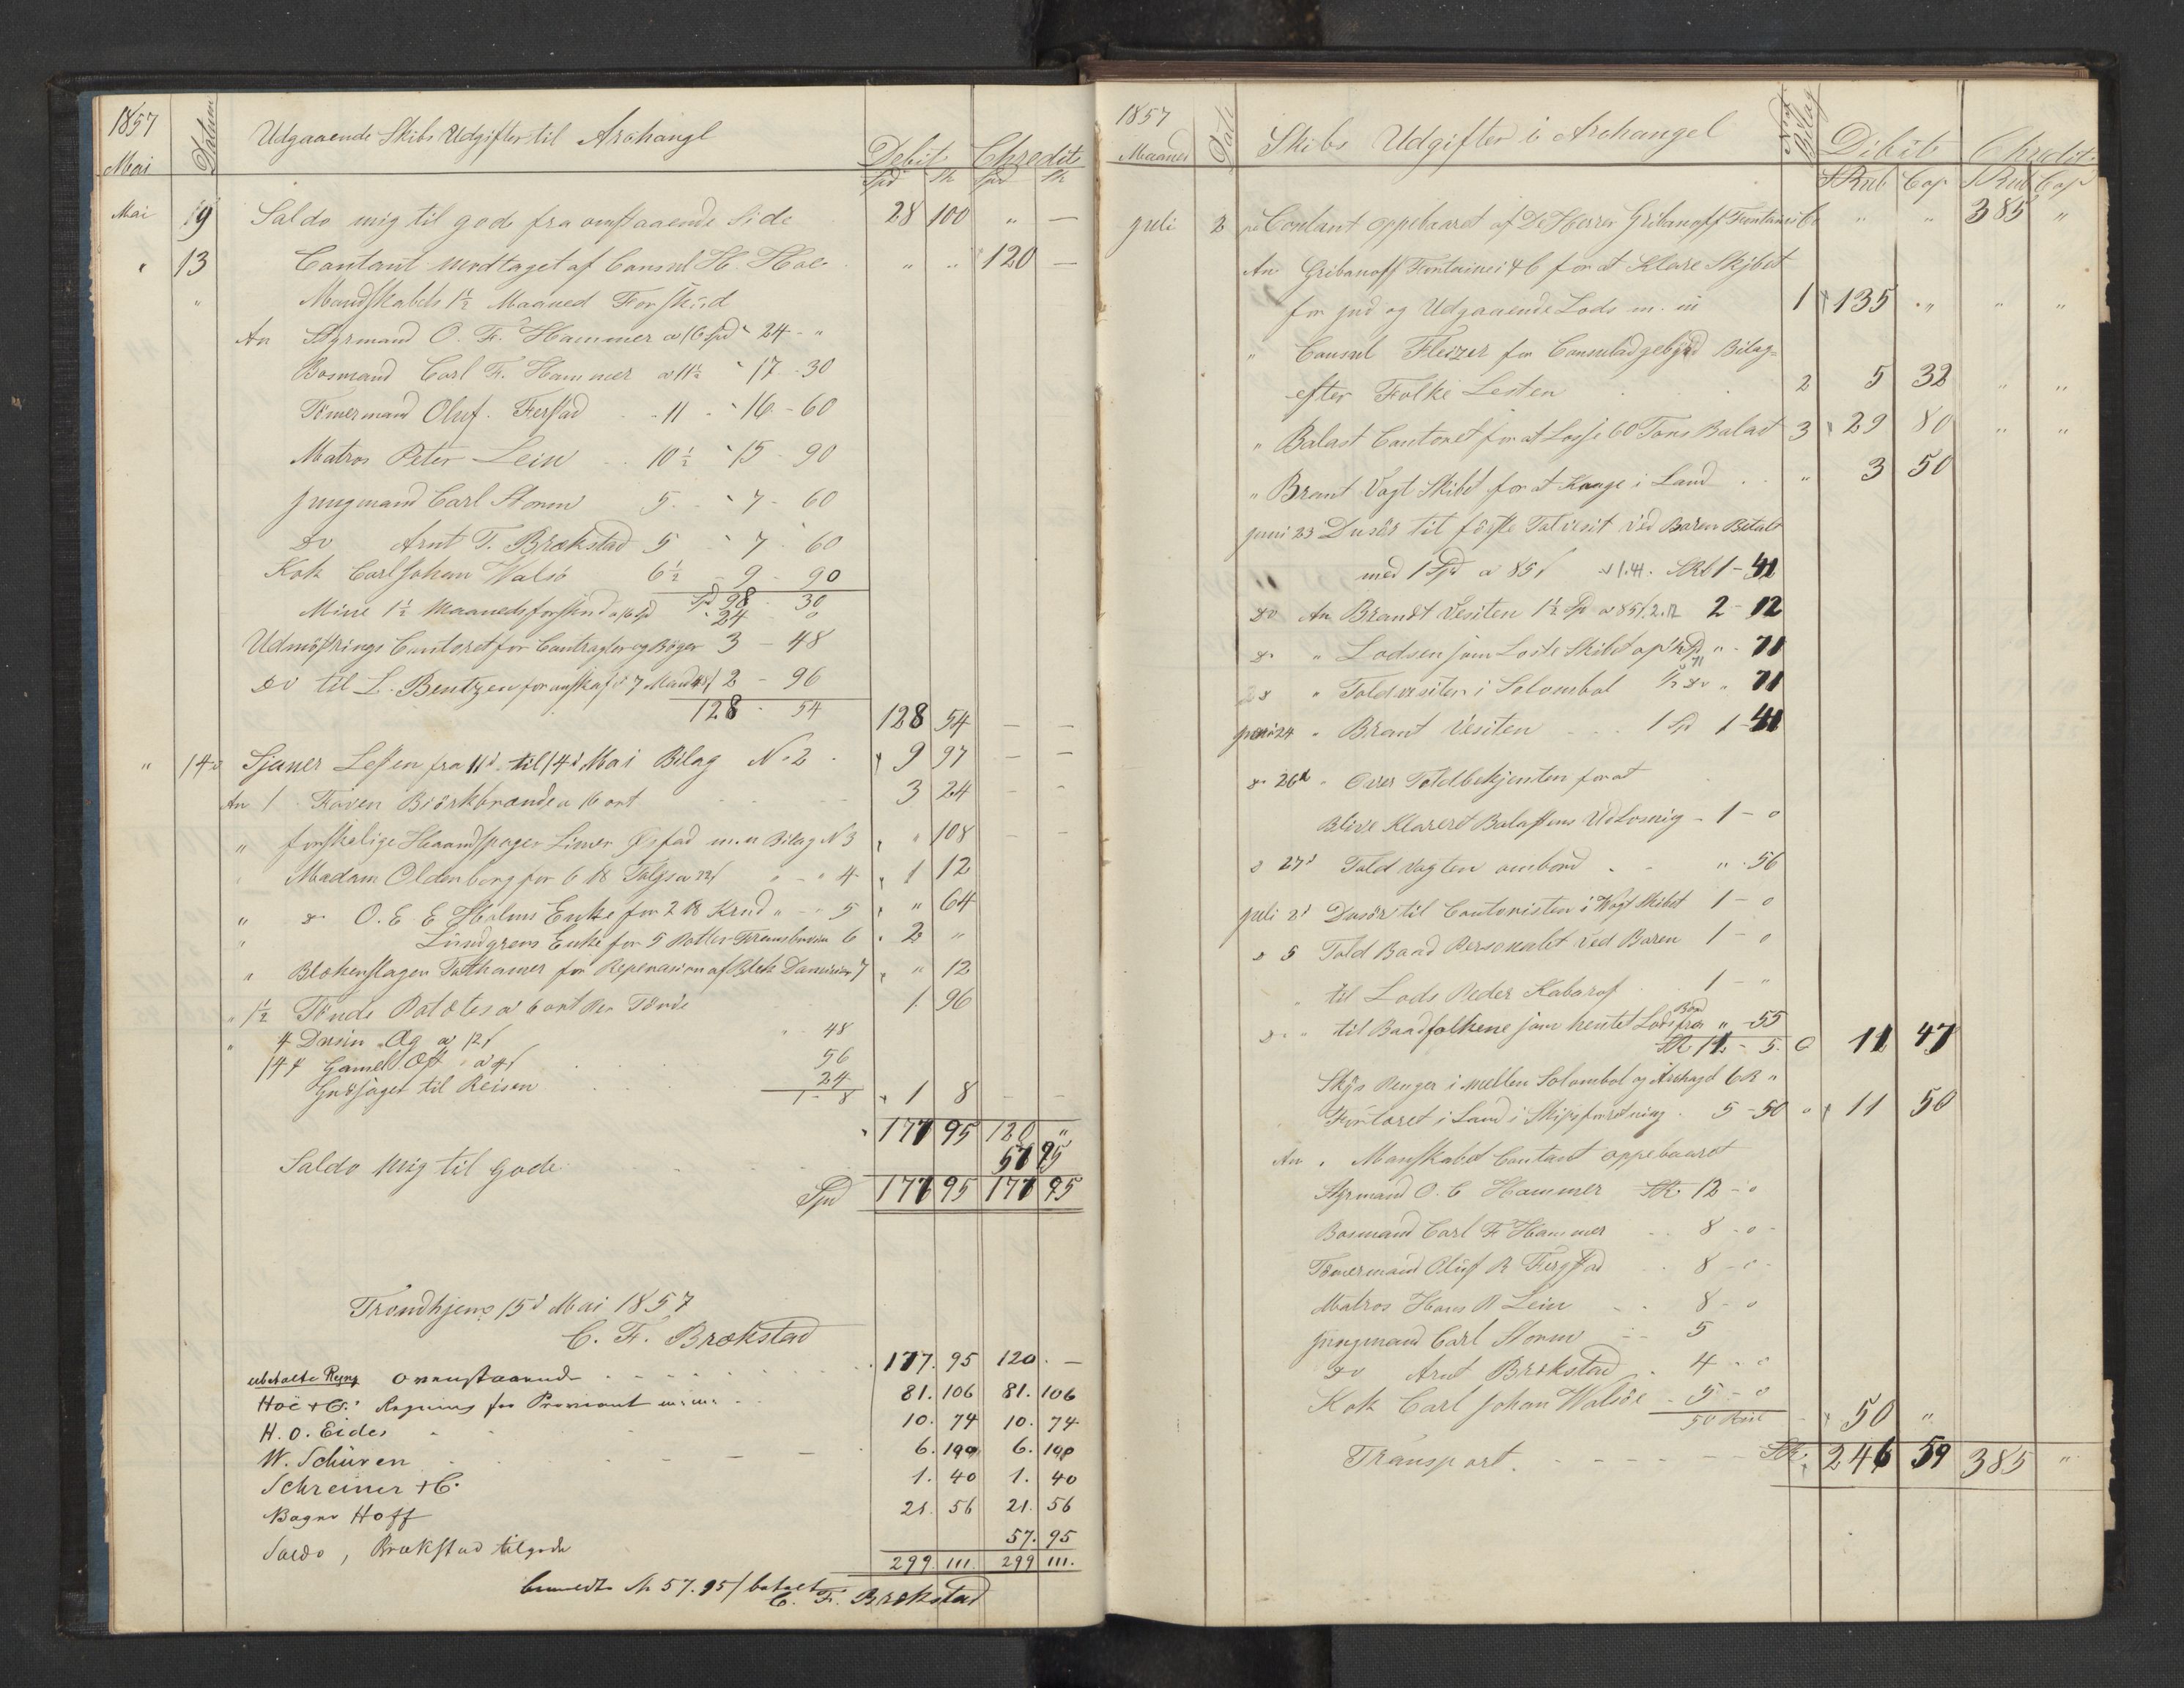 1857
Mai
Datum
Udgaaende Skibs Udgifter til Archangl
Debit Chredit
Spd Sk Spd Sk
Mai 19 Saldo mig til gode fra omstaaende Side 28 100 " —
" 13 Contant modtaget af Consul H. Hoe " " 120 —
" Mandskabets 1½ Maaned Forskud
An Styrmand O. F. Hammer a 16 Spd " 24 - "
Bosmand Carl F. Hammer a 11½ " 17 - 30
Tömermand Oluf. Ferstad - 11 - " 16 - 60
Matros Peter Lein - 10½ " 15 - 90
Jungmand Carl Storm 5 - " 7 - 60
Do Arnt T. Brækstad 5 " 7 - 60
Kok Carl Johan Walsö 6½ - 9 - 90
Spd 98 - 30
Mine 1½ Maaneds forskud a 16 Spd " 24 "
Udmöstrings Contoret for Contragter og Böger 3 - 48
Do til L. Bentzen for 7 Mand 2 - 96
128 - 54 128 54 — —
" 14 d Sjauer Lesten fra 11 d til 14 d Mai Bilag No 2 " 9 97 — —
An 1 Faven Biörkbrænde a 16 ort 3 24 - -
" forskelige Haandspager Limer m.v Bilag N 3 " " 108 — —
Madam Oldenborg for 6 ℔ Talg a 22 " - " 4 " 1 12
" Do O. E. E Holms Enke for 2 ℔ Krud " - 5 " " 64
" Lündgrens Enke for 5 Potter 6 " 2 "
" Blekenslager for Reperasion af Blek 7 " " 12
" 1½ Tönde Potetes a 6 ort Per Tönde 1 96
" 4 Dusin Æg a 12 " 48
14 ℔ Gamel Ost a 4 56
til Reisen 24
1 - 8 " 1 8 — —
" 177 95 120 "
Saldo Mig til Gode 57 95
Spd 177 95 177 95
Trondhjem 15 d Mai 1857
C. F. Brækstad
ubetalte Regng ovenstaaende 177. 95 120. —
Höe & Co. Regning for Proviant m.m. 81. 106 81. 106
H. O. Eides 10. 74 10. 74
W. Schüven 6. 100 6. 100
Schreiner & C. 1. 40 1. 40
Bager Hoff 21. 56 21. 56
Saldo, Brækstad tilgode 57. 95
299. 111. 299 111.
57. 95 betalt
C. F. Brækstad
1857
Maaned
Date
Skibs Udgifter i Archangel
No af Bilag
Dibit Chredit
SRub Cop SRub Cop
Juli 2 Contant oppebaaret af De Herrer Gribanoff Fontaines Co " " 385 "
An Gribanoff Fontaines & C for at Klare Skibet
for ind og Udgaaende Lods m. m 1 " 135 " " "
" Consul Fleizer for Bilag
efter Folke Lesten 2 5 32 " "
" Balast Contoret for at Losse 60 Tons Balast 3 " 29 80 " "
" Brant Vagt Skibet for at Kaage i Land " 3 50
Juni 23 Dusör til förste Tolvesit ved Baren Betalt
med 1 Spd a 85 1.41. SRb 1 - 41
Do An Brandt Vesiten 1½ Sp a 85 2.12 2 - 12
Do " Lodsen som Loste Skibet op ½ Sp " - 71
Do " Toldvesiten i Solombol ½ Do " 71
Juni 24 " Brant Vesiten 1 Spd 1 - 41
Do 26 d " Over Toldbetjenten for at
Blive Klareret Balastens Udlosnig - 1 - 0
Do 27 d Told Vagten ombord " - 56
Juli 2 d Dusör til Contoristen i Vagt Skibet 1 - 0
Do 5 Told Baad Personalet ved Baren 1 - 0
" til Lods Peder Kabarof 1 - "
Do " til Baadfolkene som hentet Lods fra Bord " - 55
SR 11 - 5. 0 11 47
Skÿs Penger i mellem Solombol og Archagel 6 R "
Fortæret i Land i Skipsforetning 5 - 50 " " 11 50
An " Manskabet Contant oppebaaret
Styrmand O. C Hammer SR 12 - 0
Bosmand Carl F Hammer 8 - 0 -
Tömermand Oluf R Fersstad 8 - 0 -
Matros Hans P Lein 8 - 0
Jungmand Carl Storm 5
Do Arnt Brækstad 4 - 0
Kok Carl Johan Walsöe - 5 - 0
50 Rub " 50 "
Transport SR. 246 59 385 "